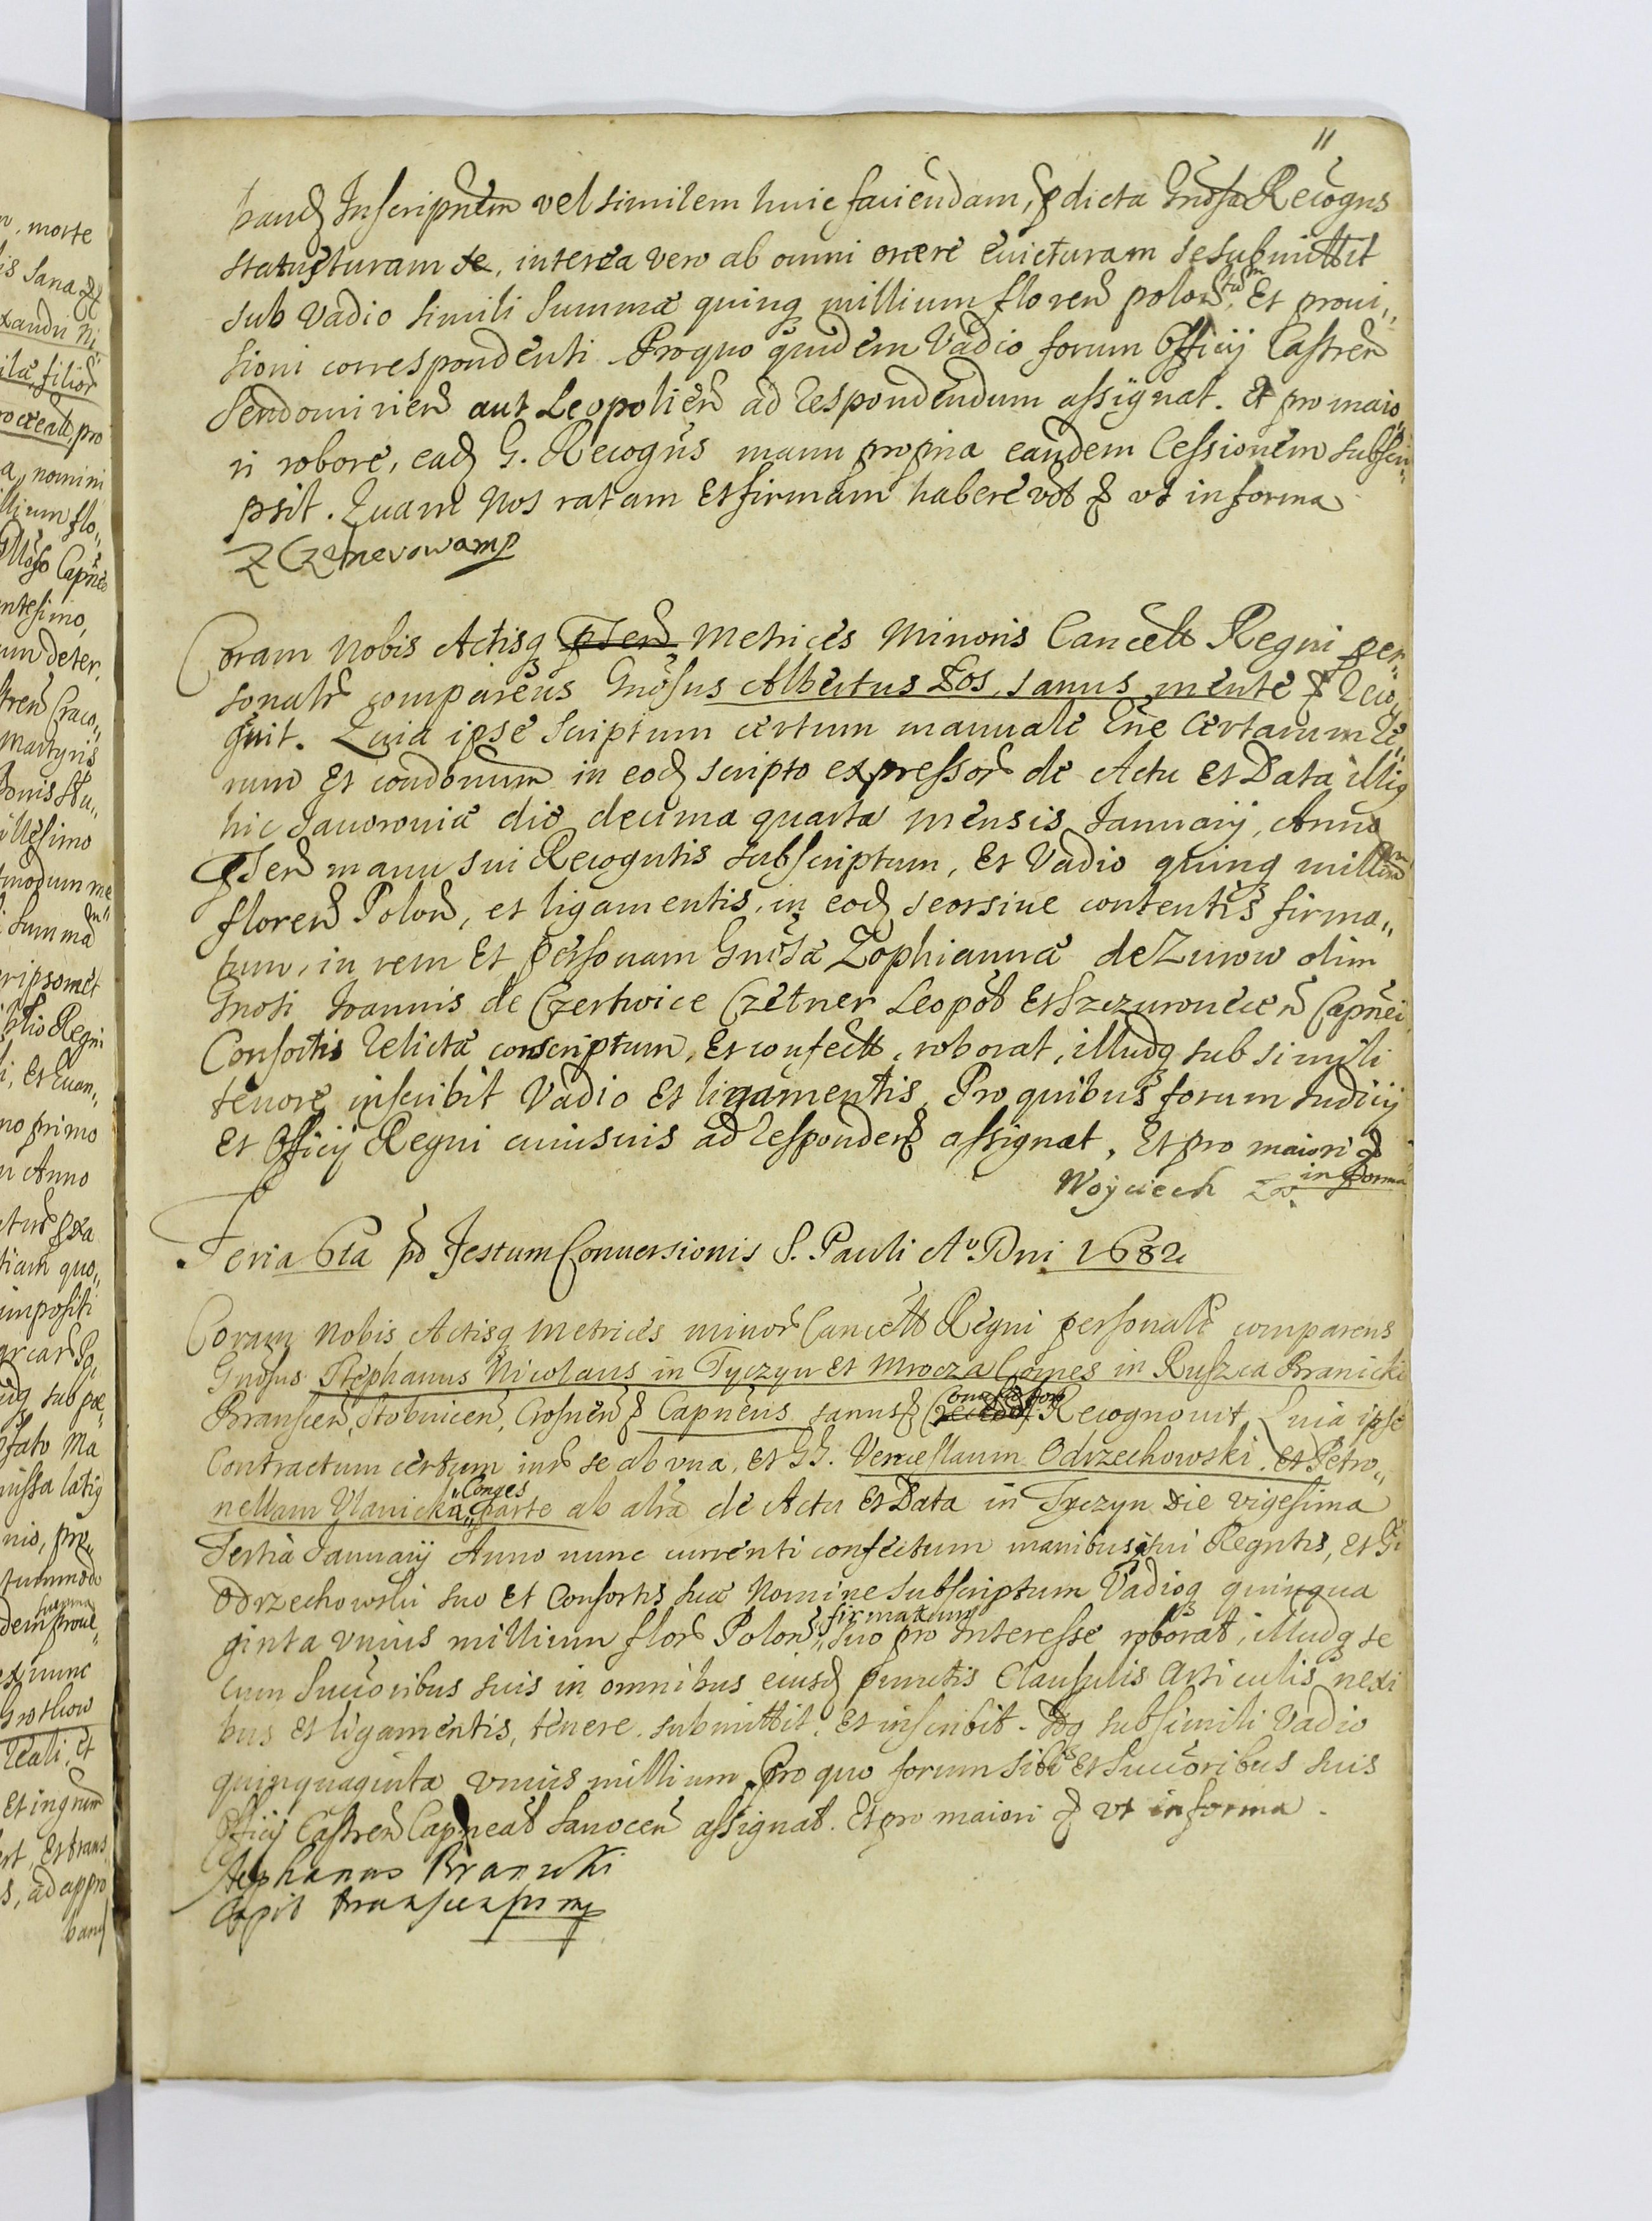 11
band Inscripnem vel similem huic faciendam, p dicta Gnosa Recogns
staturam se, interea vero ab omni onere euicturam se submittit
sub Vadio simili Summæ quinq millium floren polon. Et proui„
sioni correspondenti. Pro quo quidem Vadio forum Officij Castren
Sendomirien aut Leopolien ad respondendum assignat. Et pro maio„
ri robore, ead G. Recogns manu propria eandem Cessionem subscri„
psit. Quam Nos ratam et firmam habere vt in forma
Z Czetnerowa mp
Coram Nobis Actisq Metrices Minoris Cancell Regni per„
sonalr comparens Gnosus Albertus Łos, sanus mente & reco„
gnit. Quia ipse scriptum certum manuale certarum re„
rum et condonum in eod scripto expressor de Actu et Data illiq
hic Jauorouiæ die decima quarta mensis Januarij, Anno
pnsen manu sui Recogntis subscriptum, et Vadio quinq millium
floren Polon, et ligamentis, in eod seorsiue contentis firma„
tum, in rem et personam Gnosæ Zophiannæ de Zurow olim
Gnosi Joannis de Czertwice Czetner Leopol et Szczurouecen Capnei
Consortis relictæ conscriptum, et confect, roborat, illudq sub simili
tenore inscribit Vadio et ligamentis. Pro quibus forum Iudicij
et Officij Regni cuiusuis ad responden assignat, et pro maiori &
in forma
Woyciech Łos
Feria 6ta po Festum Conuersionis S. Pauli Ao. Dni 1682
Coram Nobis Actisq Metrices minor Cancell Regni personalr comparens
Gnosus Stephanus Nicolaus in Tyczyn et Mrocza Comes in Ruszca Branicki
Bransceń, Stobnicen, Crosnen & Capneus sanus & Recognouit, Quia ipse
Contractum certum intr se ab vna, et GG. Venceslaum Odrzechowski et Petro„
nellam Vlanicka „Conges parte ab altra de Actu et Data in Tyczyn die vigesima
Tertia Januarij Anno nunc currenti confectum manibus sui Regntis, et Gi
Odrzechowski suo et Consortis suæ Nomine subscriptum Vadioq quinqua
ginta vnius millium flor Polon „firmatum suo pro Interesse roborat, illudq se
cum Succoribus suis in omnibus eiusd punctis Clausulis Articulis nexi
bus et ligamentis, tenere submittit, et inscribit. sub simili Vadio
quinquaginta vnius millium. Pro quo forum sibi et Succoribus suis
Officij Castren Capneal Sanocen assignat. Et pro maiori & vt in forma.
Stephanus Branicki
Capit Branscensis mp